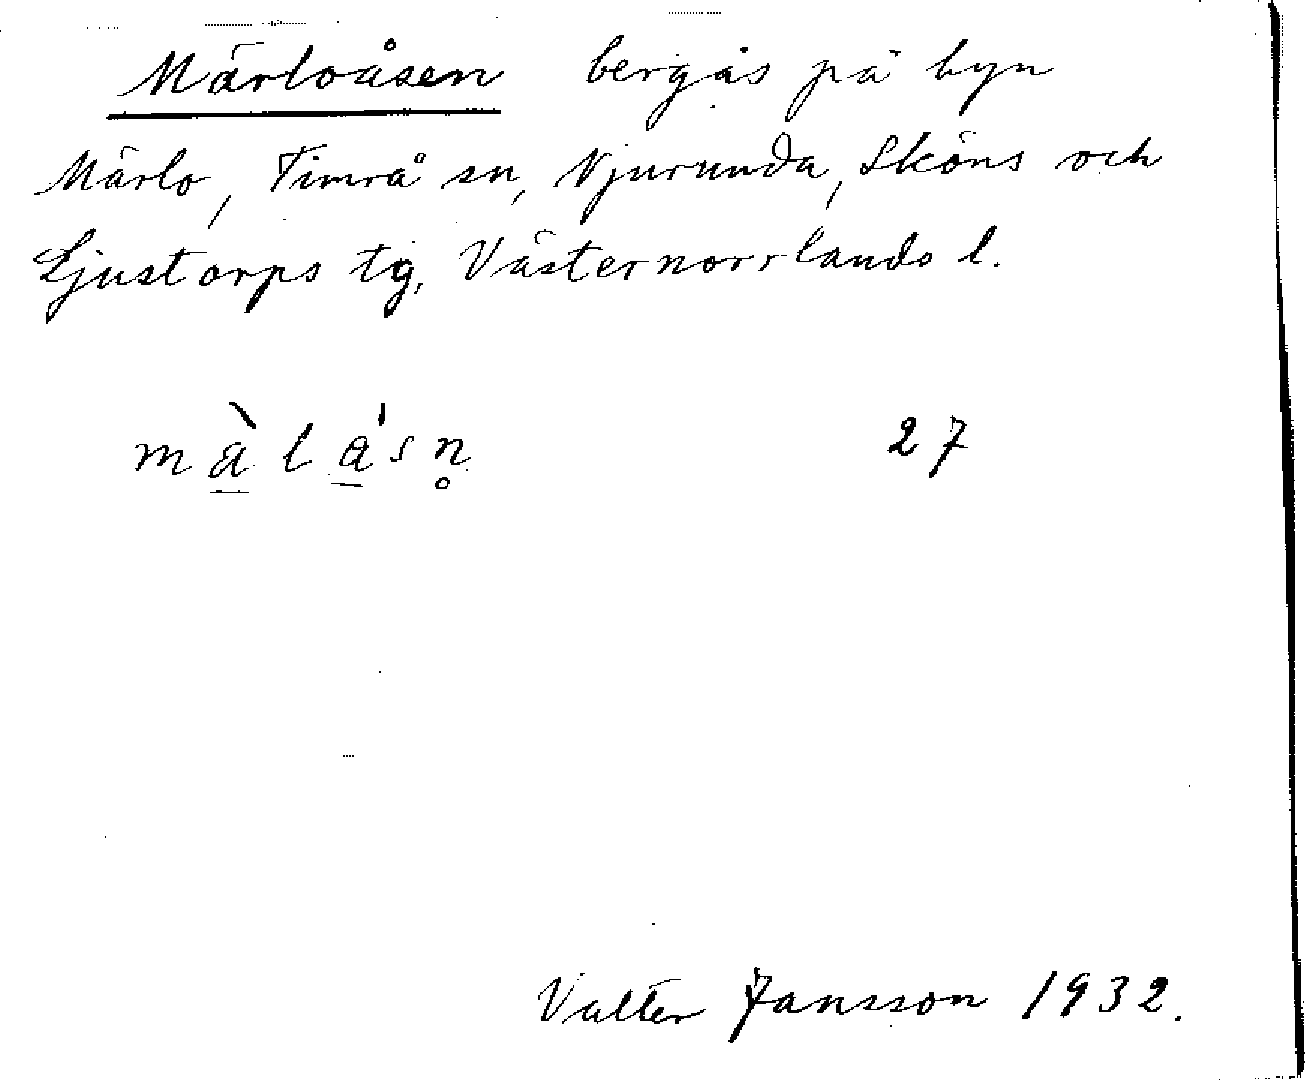 Märloåsen bergås på byn
Märlo, Timrå sn, Njurunda, Sköns och
Ljustorps tg, Västernorrlands l.
mà̱la̱'sn̥ 27
Valter Jansson 1932.